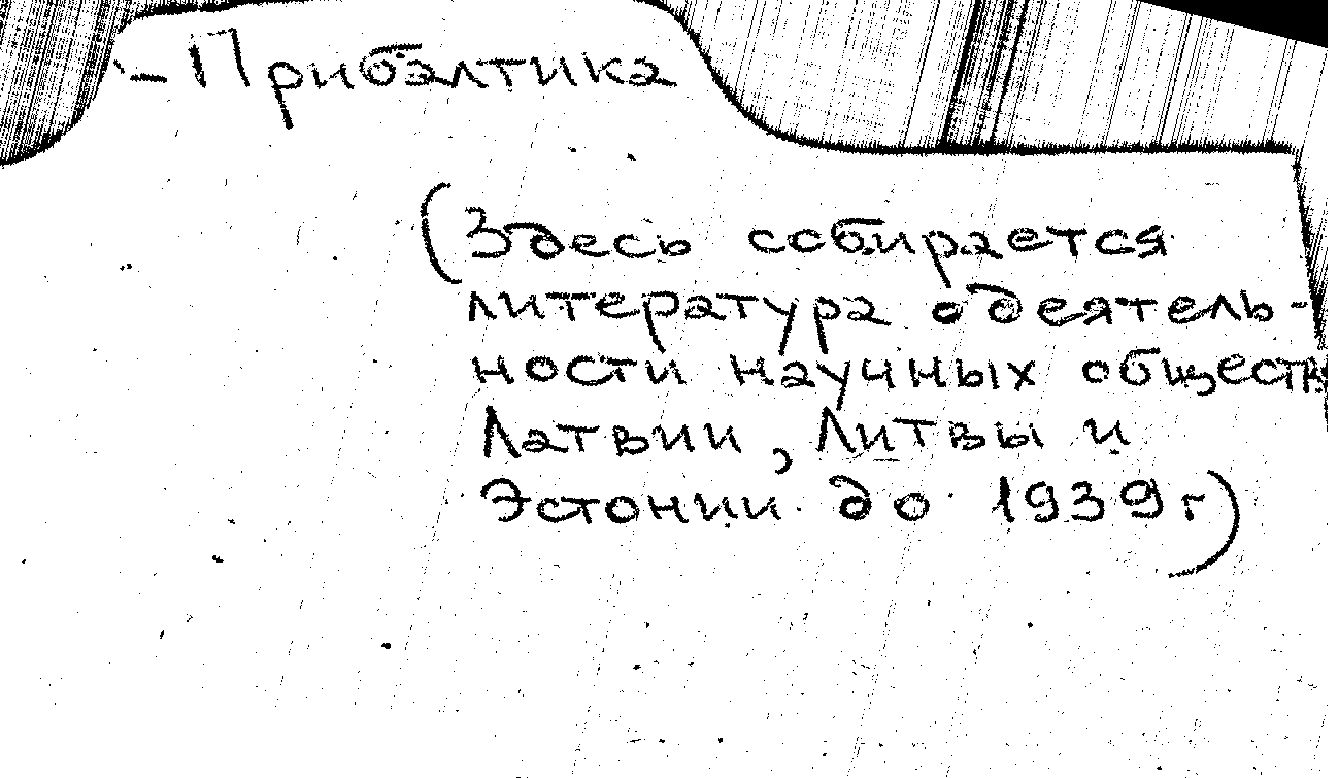 - Прибалтика
(Здесь собирается
литература о деятель-
ности научных обществ
Латвии, Литвы и
Эстонии до 1939 г)